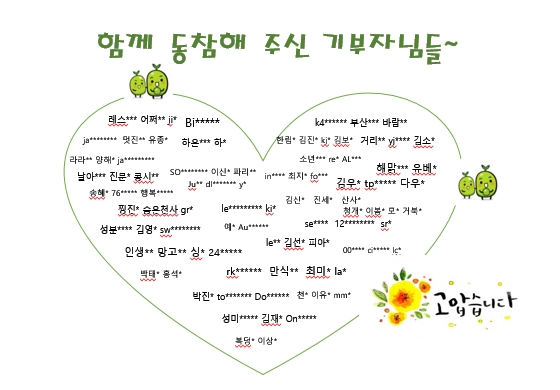 함께 동참해 주신 기부자님들~
레스*** 어쩌** ji* Bi***** k4****** 부산*** 바람**
ja******** 멋진** 유종* 하은*** 하* 한림* 김진* kj* 김보* 거리** yj**** 김소*
라라** 양해* ja********* 소년*** re* AL***
날아*** 진문* 콩시** SO******** 이신* 파리** in**** 최지* fo*** 해맑*** 유베*
Ju** dl******* y* 김우* tp***** 다우*
송혜* 76***** 행복*****
찡진* 습은천사 gr* le********* ki* 김신* 진세* 산사*
청개* 이봄* 모* 거북*
성분**** 김영* sw******** 예* Au****** se**** 12******** sr*
인생** 망고** 싱* 24****** le** 김선* 피아* 00**** ci***** lc*
박태* 홍석* rk****** 만식** 최미* la*
박진* to******* Do****** 천* 이유* mm*
고맙습니다
성미***** 김재* On*****
복덩* 이상*